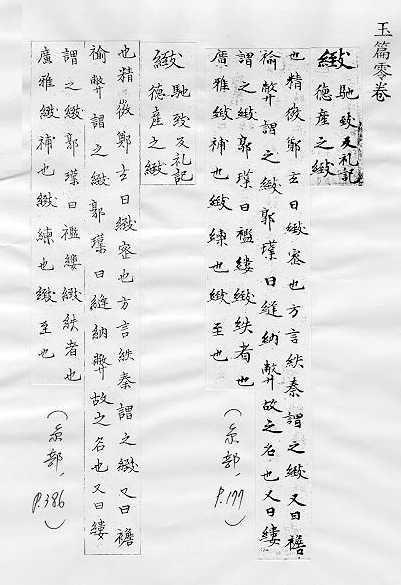 玉篇零卷
緻 馳致反礼記
德產之緻
也精微鄭玄曰緻密也方言紩秦謂之緻又曰襜
褕弊謂之緻郭璞曰縫納弊故之名也又曰褸
謂之緻郭璞曰襤縷緻紩者也
廣雅緻補也緻練也緻至也
(糸部, P.177)
緻 馳致反礼記
德產之緻
也精微鄭玄曰緻密也方言紩秦謂之緻又曰襜
褕弊謂之緻郭璞曰縫納弊故之名也又曰褸
謂之緻郭璞曰襤縷緻紩者也
廣雅緻補也緻練也緻至也
(糸部, P.386)